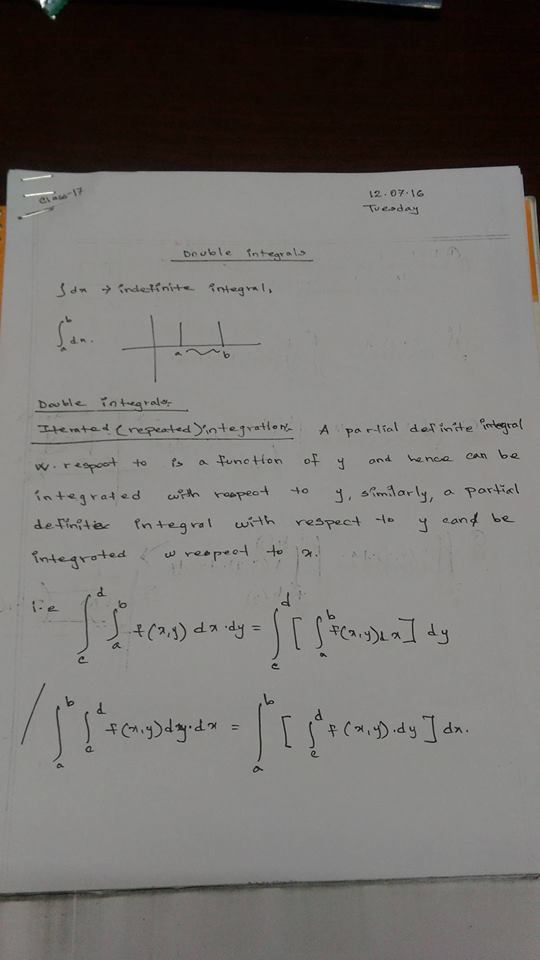 Class-17
12.07.16
Tuesday
Double integrals
∫dx → indefinite integral,
∫_a^b dx.
a b
Double integrals-
Iterated (repeated) integration:- A partial definite integral
w. respect to is a function of y and hence can be
integrated with respect to y, similarly, a partial
definite integral with respect to y cand be
integrated w respect to x.
i.e ∫_c^d ∫_a^b f(x,y) dx·dy = ∫_c^d [ ∫_a^b f(x,y)dx] dy
/ ∫_a^b ∫_c^d f(x,y)dy·dx = ∫_a^b [ ∫_c^d f(x,y)·dy ] dx.